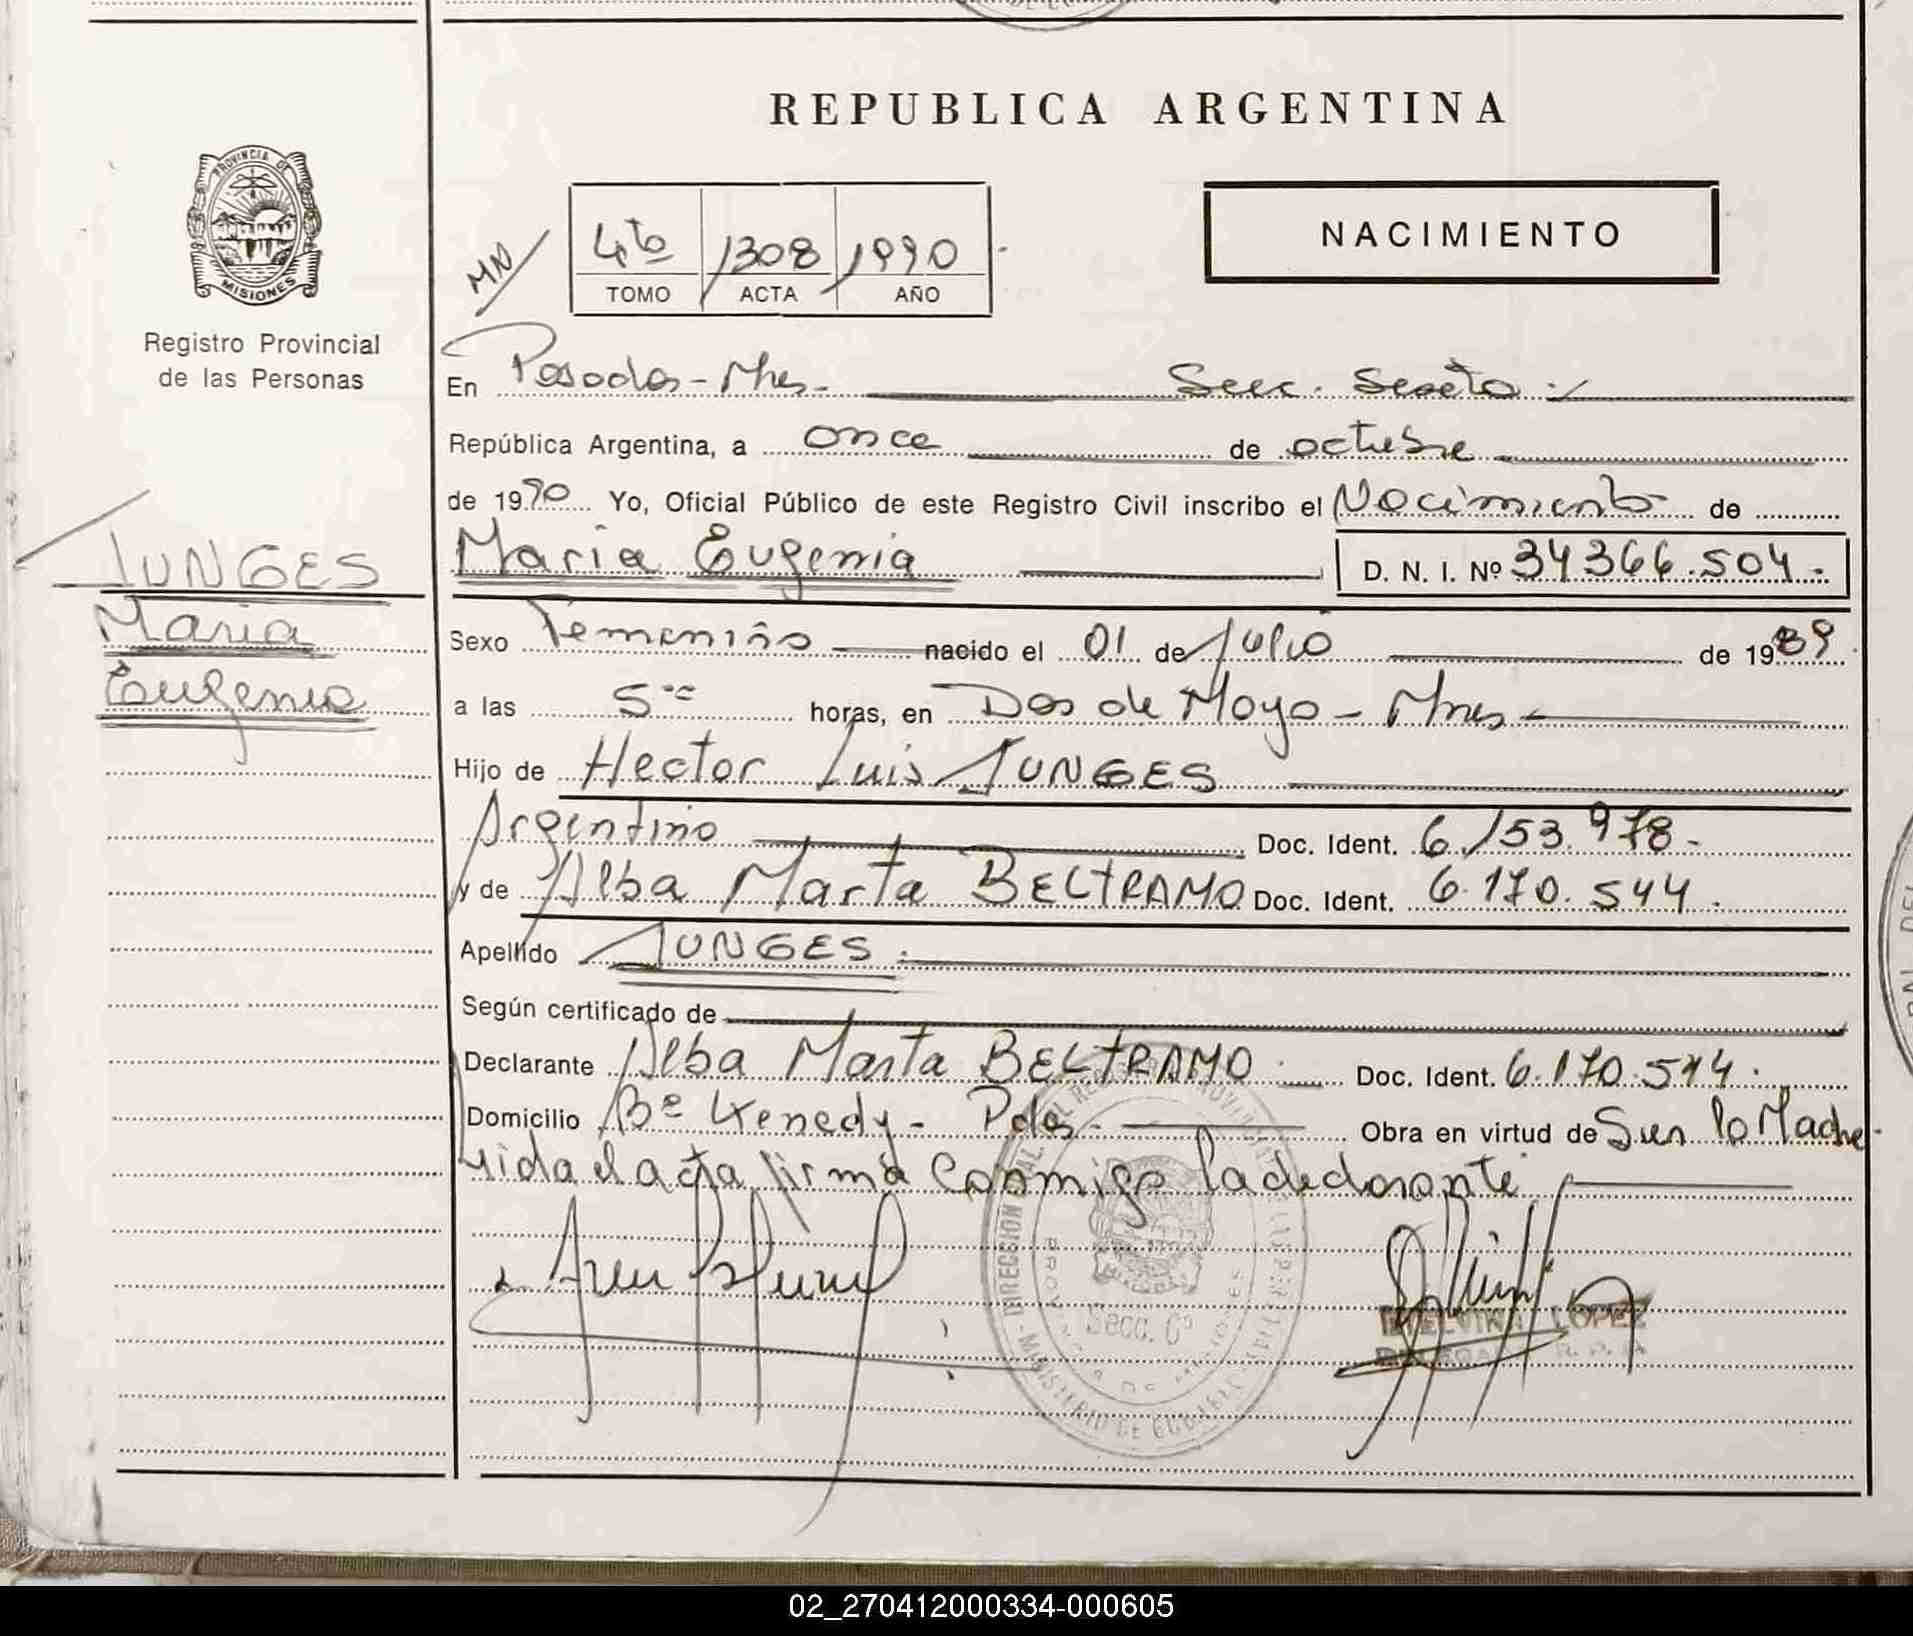 REPUBLICA ARGENTINA
PROVINCIA DE
MISIONES
Registro Provincial
de las Personas
NACIMIENTO
MN
4to 1308 1990
TOMO ACTA AÑO
En Posadas - Mnes - Secc. Sexta :/
República Argentina, a once de octubre
de 1990 Yo, Oficial Público de este Registro Civil inscribo el Nacimiento de
JUNGES
Maria
Eugenia
Maria Eugenia D. N. I. Nº 34366.504.
Sexo Femenino nacido el 01 de Julio de 1989
a las 5 horas, en Dos de Mayo - Mnes -
Hijo de Hector Luis JUNGES
Argentino Doc. Ident. 6.153.978 -
y de Alba Marta BELTRAMO Doc. Ident. 6.170.544.
Apellido JUNGES
Según certificado de
Declarante Alba Marta BELTRAMO Doc. Ident. 6.170.544.
Domicilio Bº Kenedy - Pdas. Obra en virtud de Ser la Madre.
Leida el acta firma conmigo la declarante
Secc. 6º
LOPEZ
02_270412000334-000605